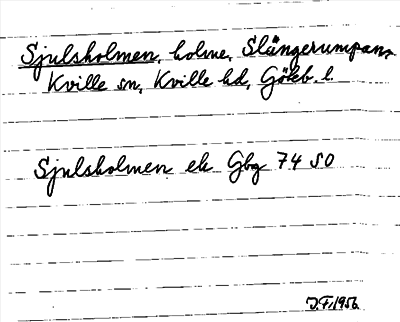 Sjulsholmen, holme, Slängerumpan,
Kville sn, Kville hd, Göteb. l.
Sjulsholmen ek Gbg 74 SO
J.F. 1956